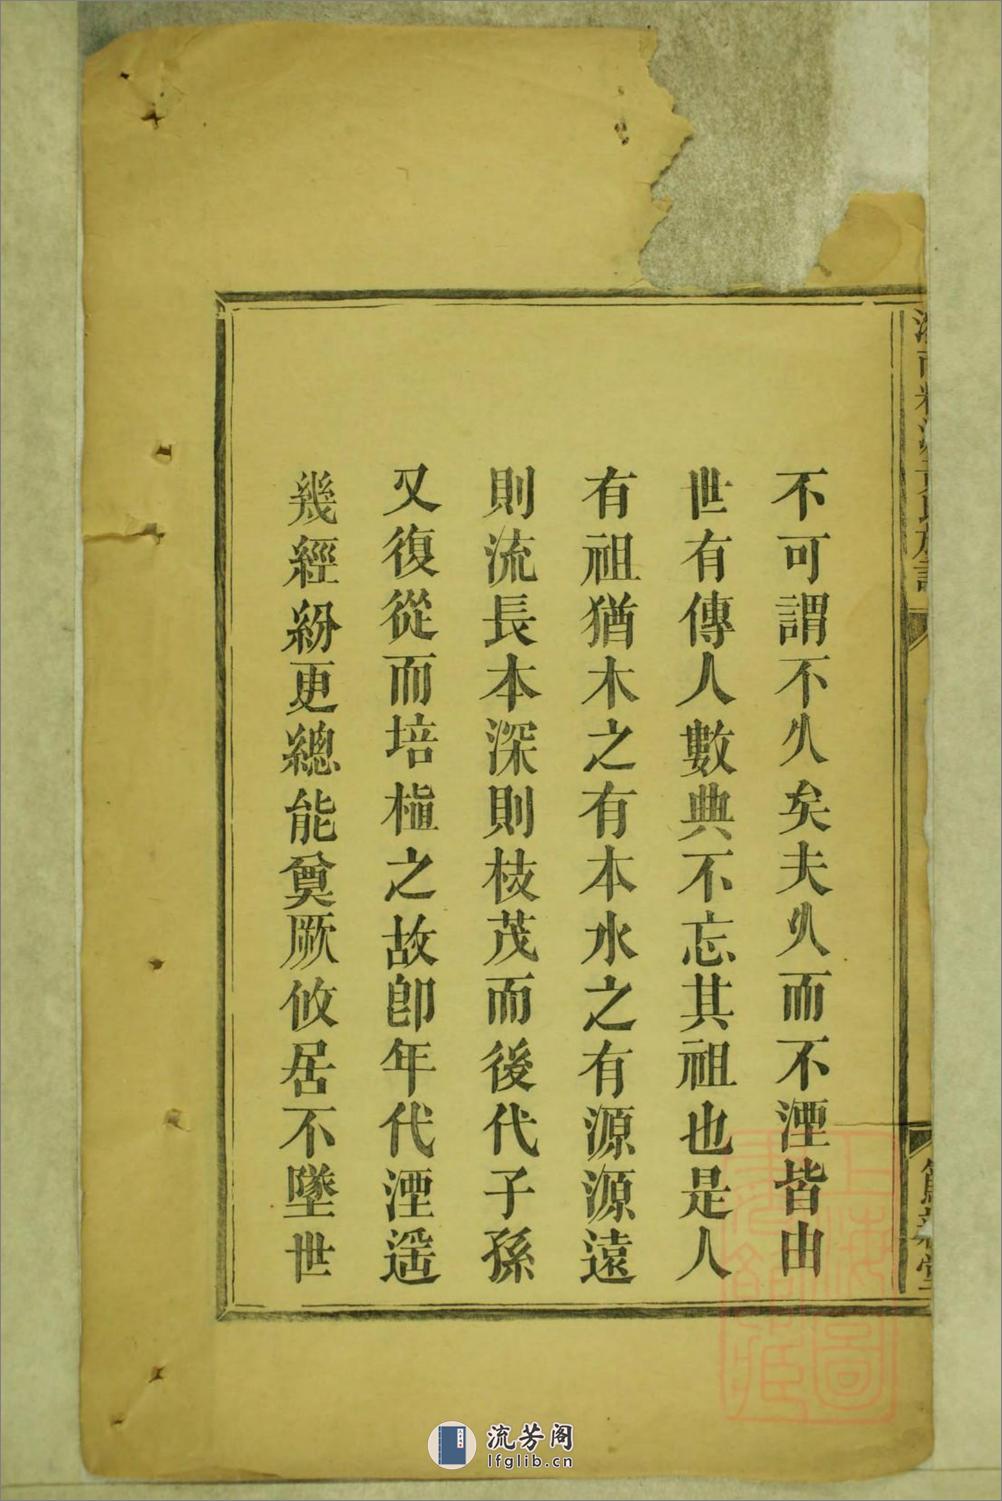 不可謂不久矣夫久而不湮皆由
世有傳人數典不忘其祖也是人
有祖猶木之有本水之有源源遠
則流長本深則枝茂而後代子孫
又復從而培植之故卽年代湮遥
幾經紛更總能奠厥攸居不墜世
流芳阁
lfglib.cn